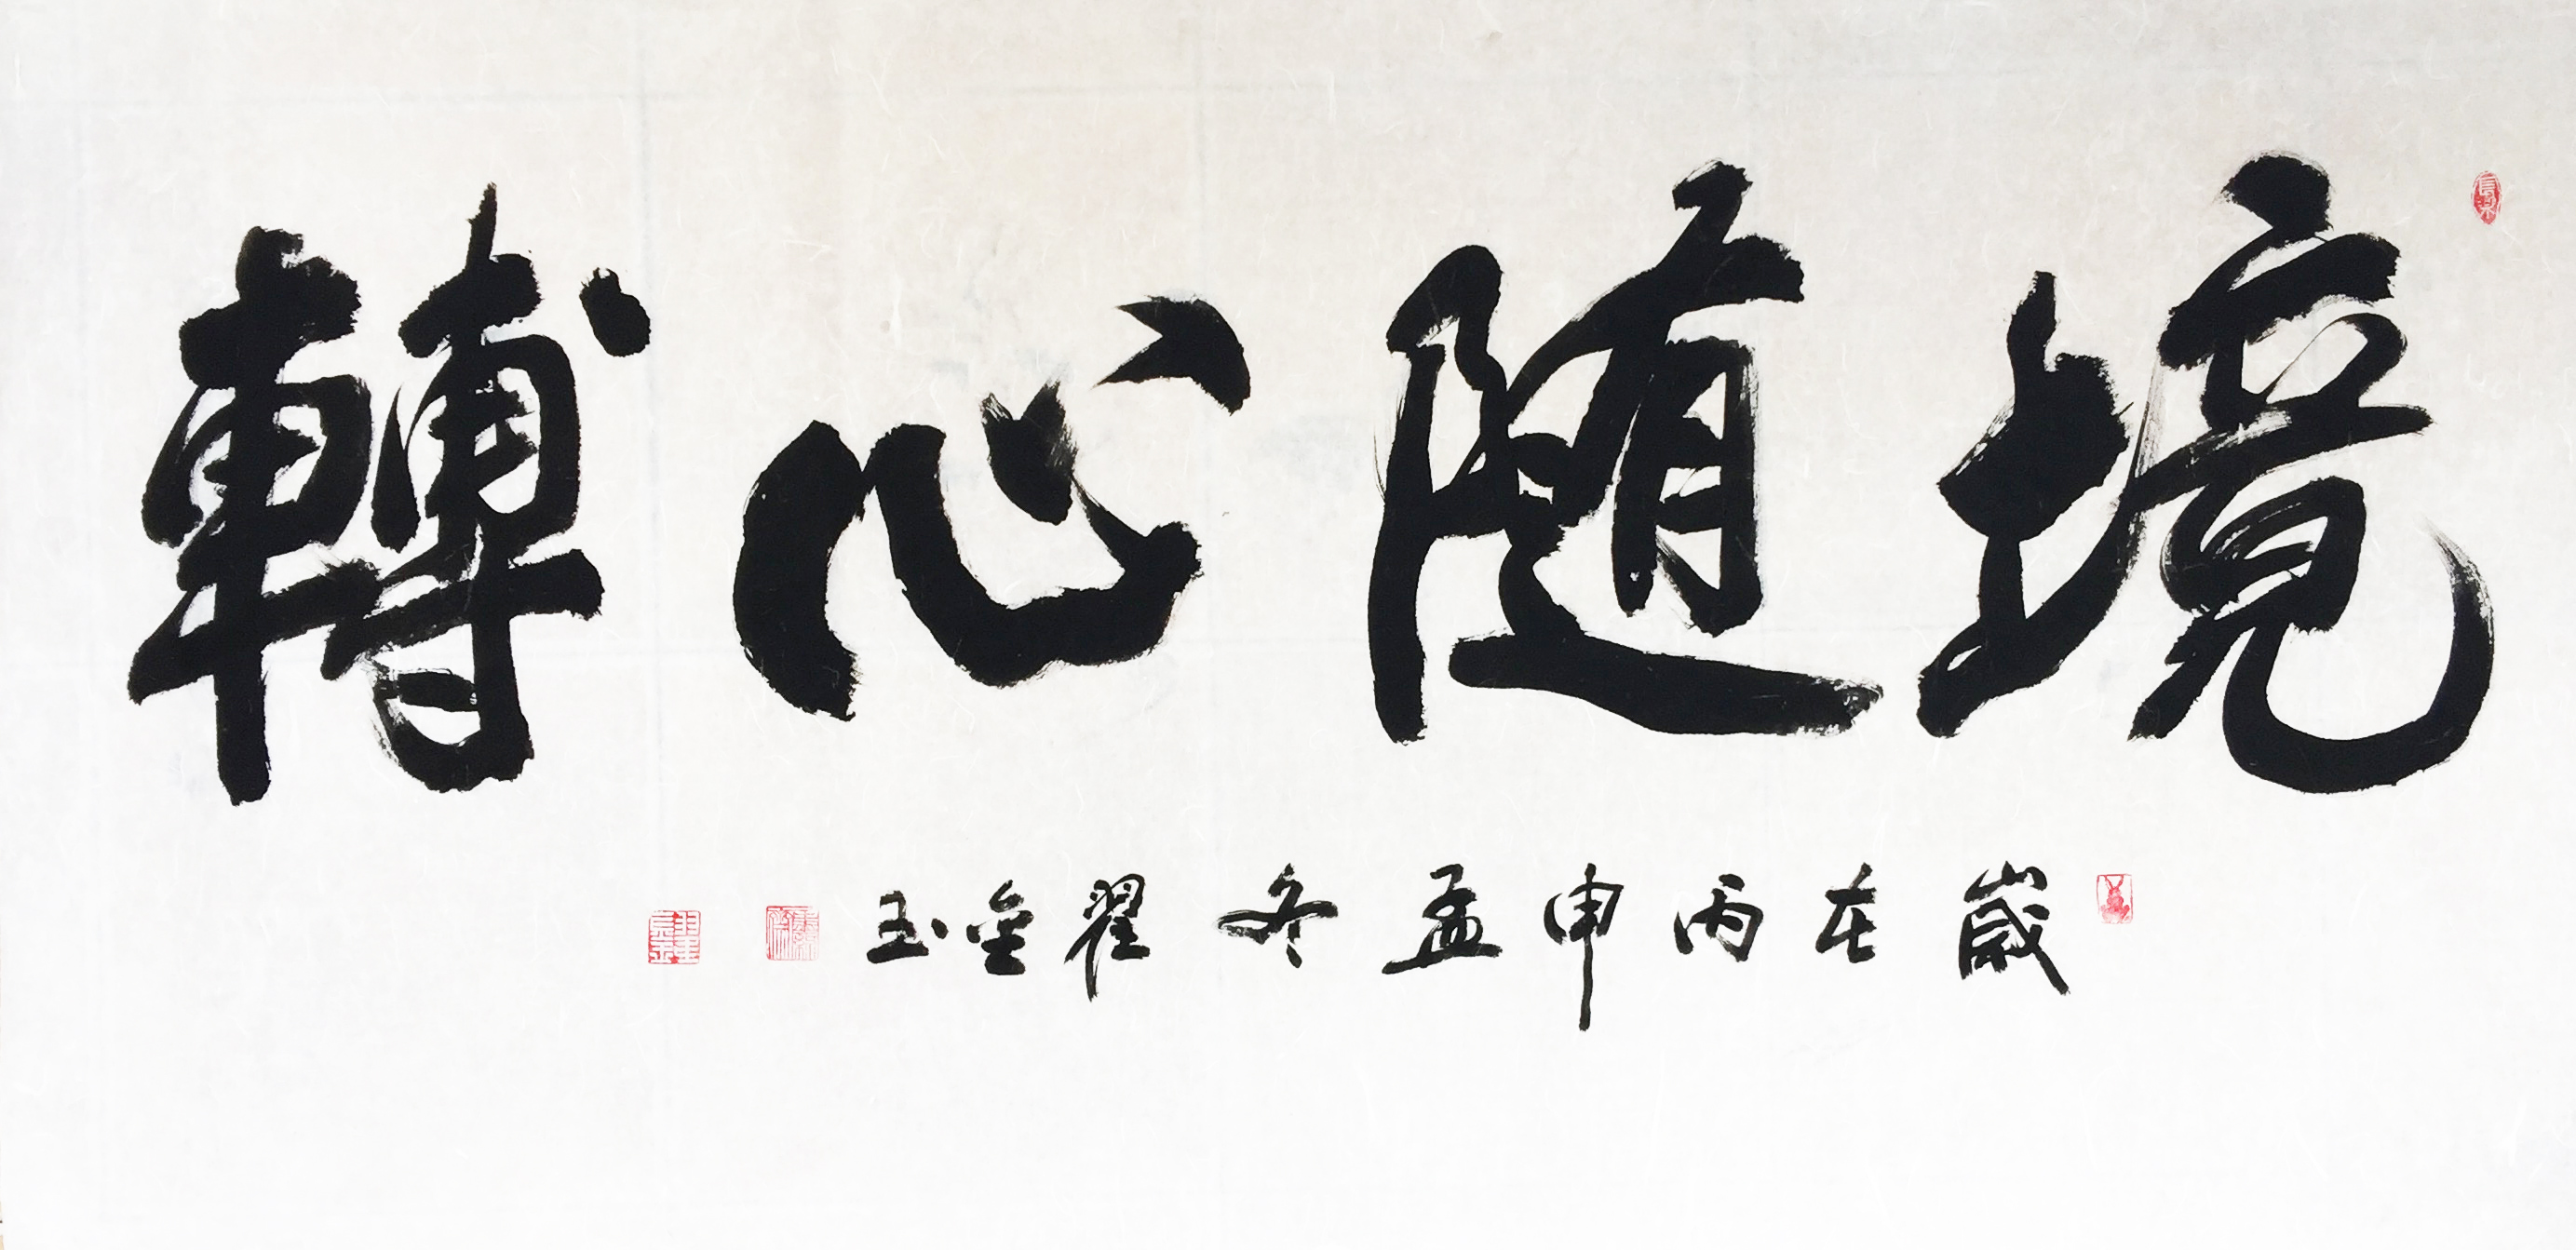 境随心轉
歲在丙申孟冬翟金玉